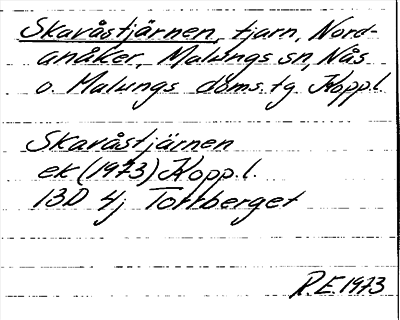 Skavåstjärnen, tjärn, Nord-
anåker, Malungs sn, Nås
o. Malungs doms.tg Kopp.l.
Skavåstjärnen
ek (1973) Kopp.l.
13D 4j Tottberget
R.E. 1973